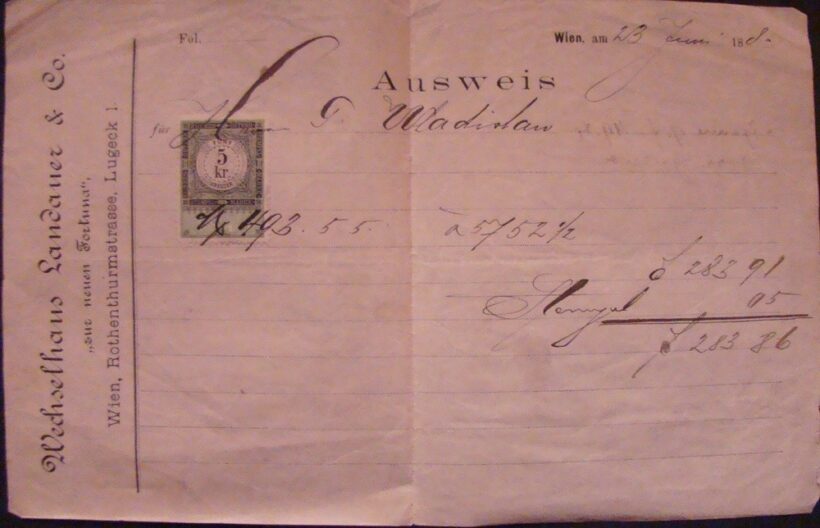 Wechselhaus Landauer & Co.
„zur neuen Fortuna“,
Wien, Rothenthurmstrasse, Lugeck 1.
Fol.
Wien, am 23 Juni 188.
Ausweis
für Herrn G. Wladislaw
5
kr.
493.55 à 5752½
f 283 91
Stempel 05
f 283 86